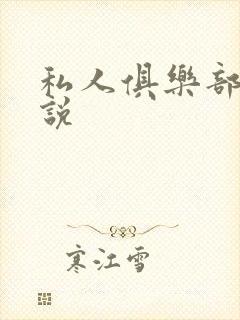 私人俱樂部
說
寒江雪